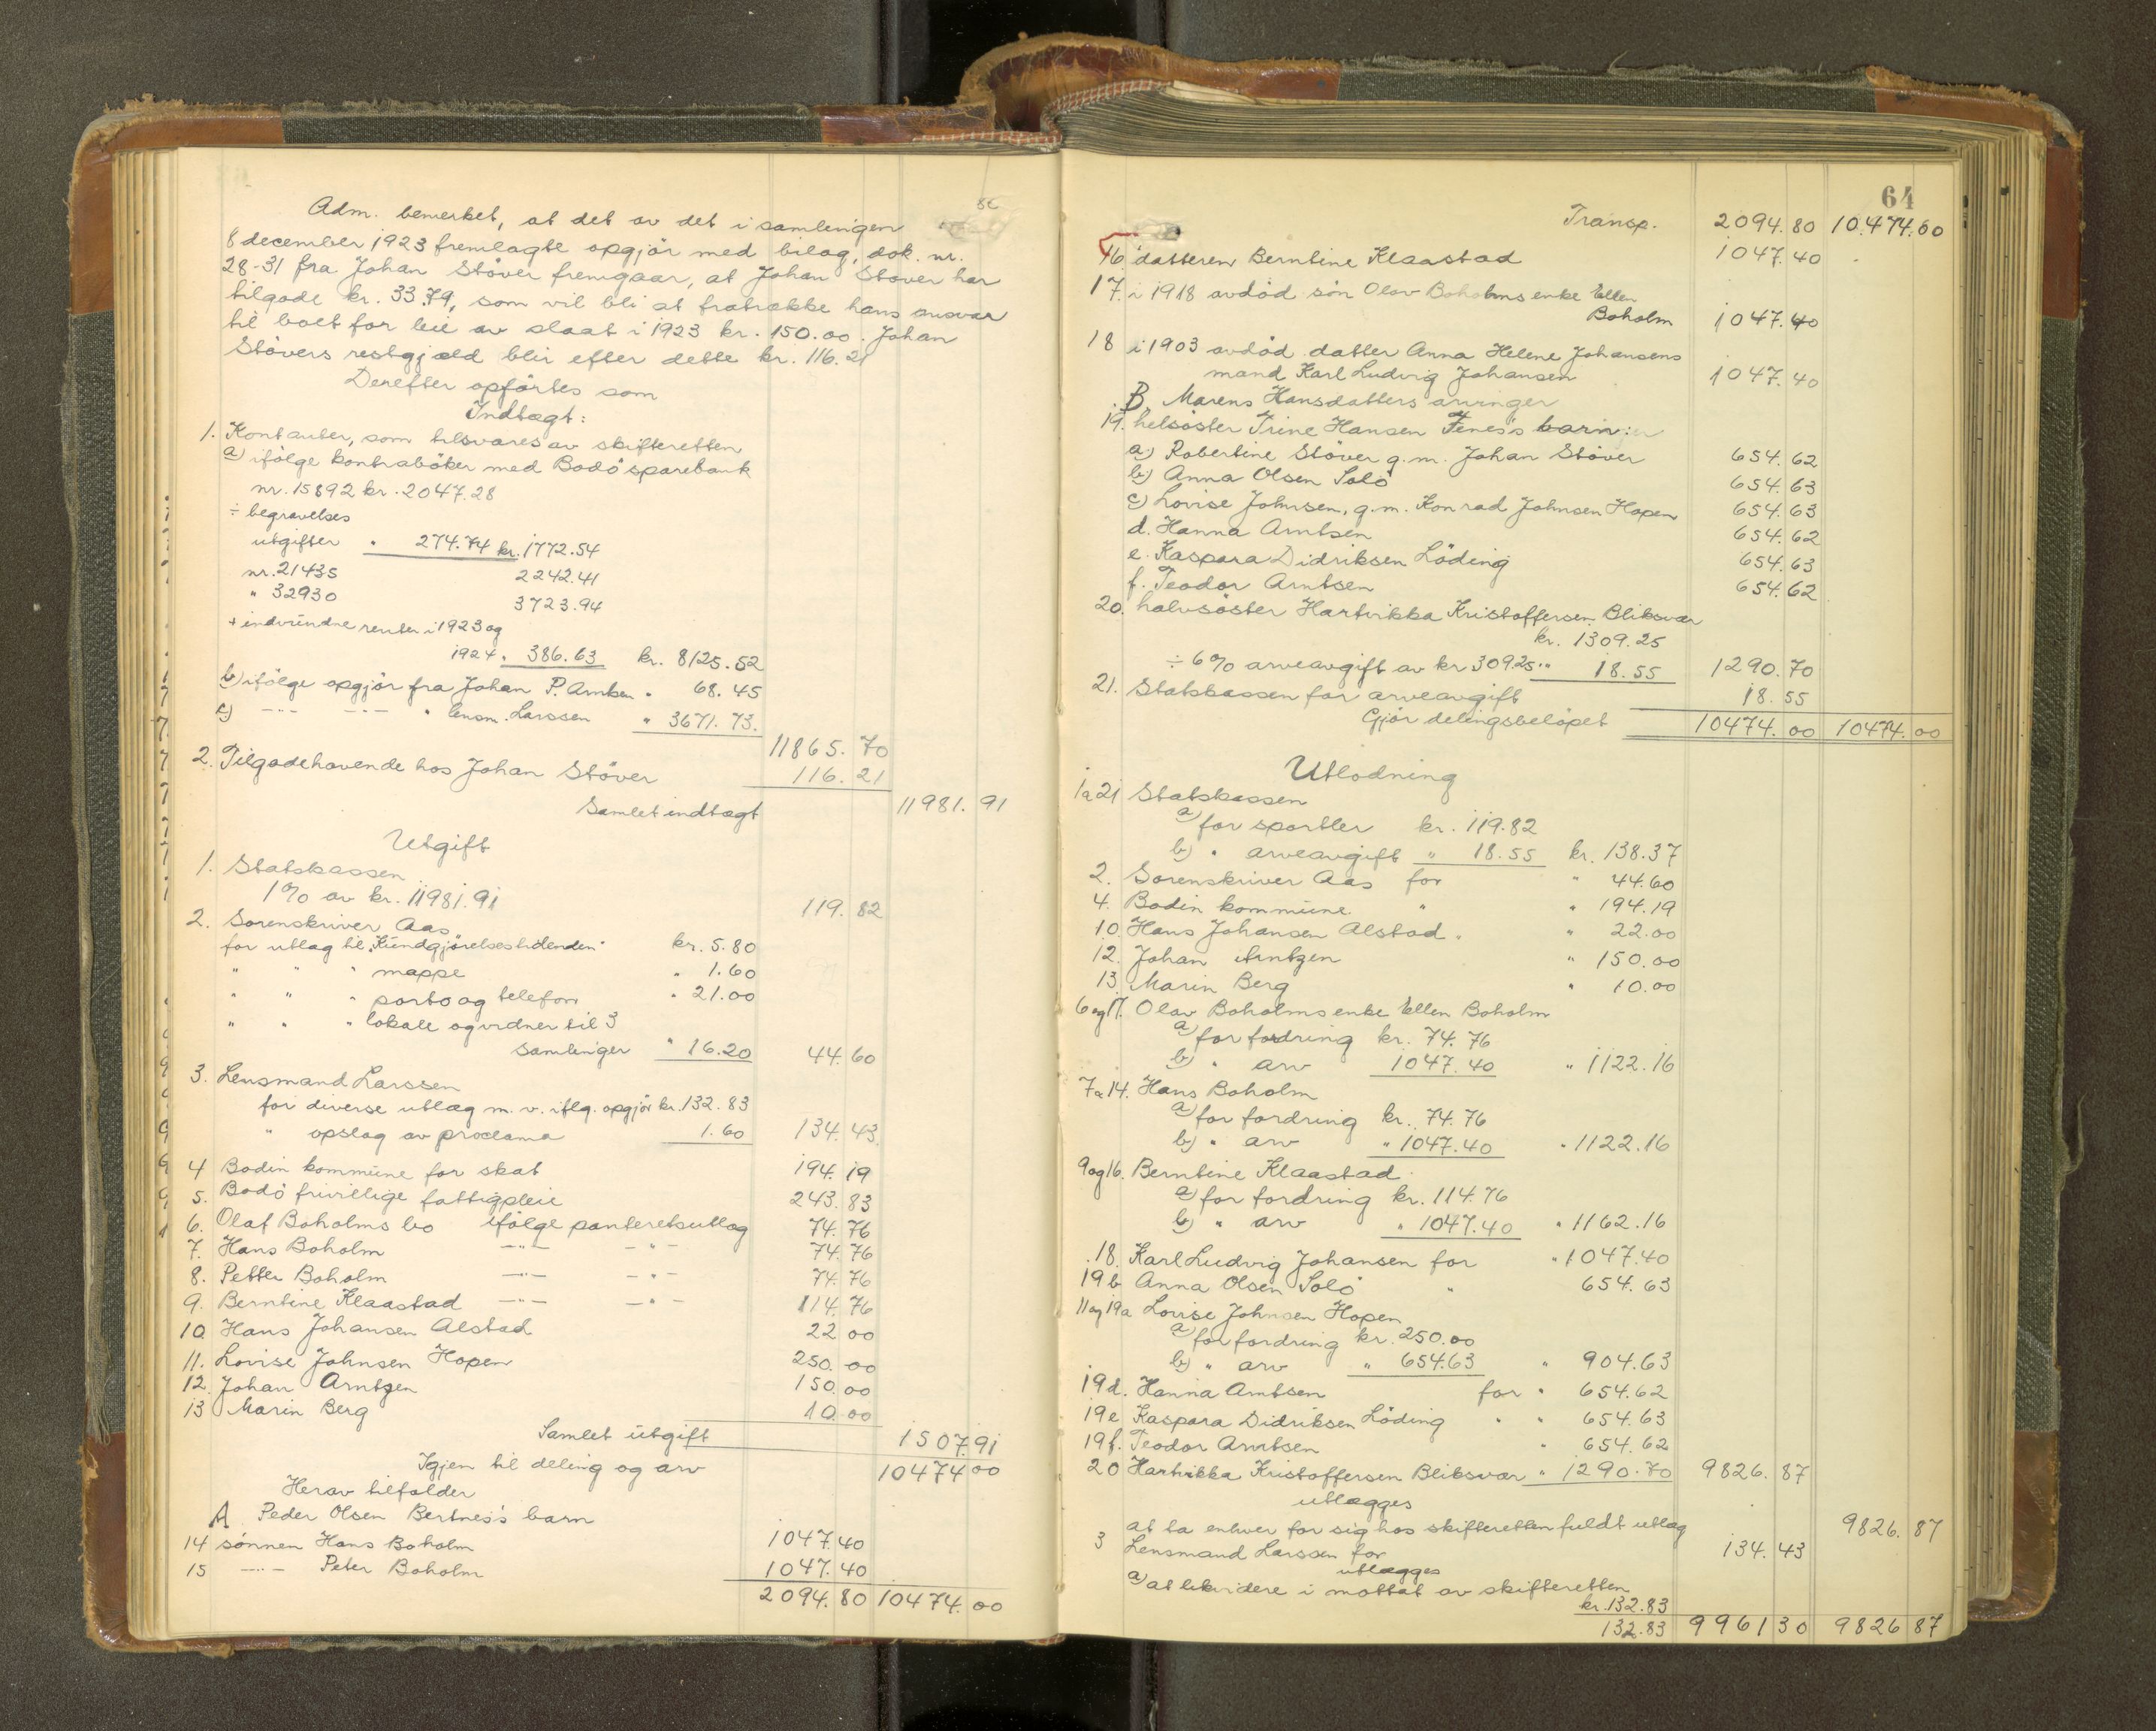 Adm. bemerket, at det av det i samlingen
8 december 1923 fremlagte opgjör med bilag, dok. nr.
28-31 fra Johan Stöver fremgaar, at Johan Stöver har
tilgode kr. 33.79, som vil bli at fratrække hans ansvar
til boet for leie av slaat i 1923 kr. 150.00. Johan
Stövers restgjæld blir efter dette kr. 116.21
Derefter opförtes som
Indtægt:
1. Kontanter, som tilsvares av skifteretten
a) ifölge kontraböker med Bodö sparebank
nr. 15892 kr. 2047.28
÷ begravelses
utgifter " 274.74 kr. 1772.54
nr. 21435 2242.41
" 32930 3723.94
+ indvundne renter i 1923 og
1924 " 386.63 kr. 8125.52
b) ifölge opgjör fra Johan P. Arntsen " 68.45
c) —"— —"— " lensm. Larssen " 3671.73.
11865.70
2. Tilgodehavende hos Johan Stöver 116.21
Samlet indtægt 11981.91
Utgift
1. Statskassen
1% av kr. 11981.91 119.82
2. Sorenskriver Aas
for utlæg til "Kundgjörelsestidenden" kr. 5.80
" " " mappe " 1.60
" " " porto og telefon " 21.00
" " " lokale og vidner til 3
samlinger " 16.20 44.60
3. Lensmand Larssen
for diverse utlæg m.v. iflg. opgjör kr. 132.83
" opslag av proclama 1.60 134.43.
4 Bodin kommune for skat 194.19
5. Bodö frivillige fattigpleie 243.83
6. Olaf Boholms bo ifölge panteretsutlæg 74.76
7. Hans Boholm —"— —"— 74.76
8. Petter Boholm —"— —"— 74.76
9. Berntine Klaastad —"— —"— 114.76
10 Hans Johansen Alstad 22 00
11. Lovise Johnsen Hopen 250.00
12. Johan Arntzen 150.00
13 Marin Berg 10.00
Samlet utgift 1507.91
Igjen til deling og arv 10474 00
Herav tilfalder
A. Peder Olsen Bertnes's barn
14 sönnen Hans Boholm 1047.40
15 —"— Peter Boholm 1047.40
2094.80 10474.00
64
Transp. 2094.80 10.474.00
16. datteren Berntine Klaastad 1047.40
17. i 1918 avdöd sön Olav Boholms enke Ellen
Boholm 1047.40
18 i 1903 avdöd datter Anna Helene Johansens
mand Karl Ludvig Johansen 1047.40
B. Marens Hansdatters arvinger
19. helsöster Trine Hansen Fenes's barn:
a) Robertine Stöver g.m. Johan Stöver 654.62
b) Anna Olsen Solö 654.63
c) Lovise Johnsen, g.m. Konrad Johnsen Hopen 654.63
d. Hanna Arntsen 654.62
e. Kaspara Didriksen Löding 654.63
f. Teodor Arntsen 654.62
20. halvsöster Hartvikka Kristoffersen Bliksvær
kr. 1309.25
÷ 6% arveavgift av kr 309.25 " 18.55 1290.70
21. Statskassen for arveavgift 18.55
Gjör delingsbelöpet 10474.00 10474.00
Utlodning
1 a 21 Statskassen
a) for sportler kr. 119.82
b) " arveavgift " 18.55 kr. 138.37
2. Sorenskriver Aas for " 44.60
4. Bodin kommune " " 194.19
10. Hans Johansen Alstad " " 22.00
12. Johan Arntzen " 150.00
13. Marin Berg " 10.00
6 og 17. Olav Boholms enke Ellen Boholm
a) for fordring kr. 74.76
b) " arv 1047.40 " 1122.16
7 a 14. Hans Boholm
a) for fordring kr. 74.76
b) " arv " 1047.40 " 1122.16
9 og 16. Berntine Klaastad
a) for fordring kr. 114.76
b) " arv " 1047.40 " 1162.16
18. Karl Ludvig Johansen for " 1047.40
19 b Anna Olsen Solö " 654.63
11 og 19a Lovise Johnsen Hopen
a) for fordring kr. 250.00
b) " arv " 654.63 " 904.63
19 d. Hanna Arntsen for " 654.62
19 e Kaspara Didriksen Löding " " 654.63
19 f. Teodor Arntsen " 654.62
20 Hartvikka Kristoffersen Bliksvær " 1290.70 9826.87
utlægges
at ta enhver for sig hos skifteretten fuldt utlæg 9826.87
3 Lensmand Larssen for 134.43
utlægges
a) at likvidere i mottat av skifteretten
kr. 132.83
132.83 9961 30 9826 87